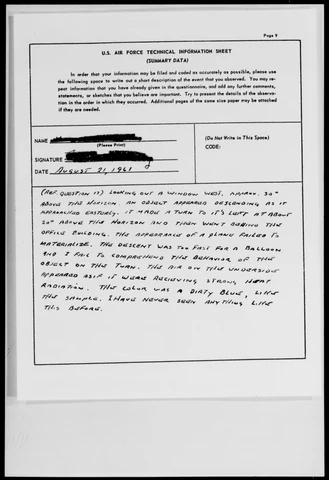 Page 9
U.S. AIR FORCE TECHNICAL INFORMATION SHEET
(SUMMARY DATA)
In order that your information may be filed and coded as accurately as possible, please use
the following space to write out a short description of the event that you observed. You may re-
peat information that you have already given in the questionnaire, and add any further comments,
statements, or sketches that you believe are important. Try to present the details of the observa-
tion in the order in which they occurred. Additional pages of the same size paper may be attached
if they are needed.
NAME
(Please Print)
SIGNATURE
DATE AUGUST 21, 1961
(Do Not Write in This Space)
CODE:
(REF. QUESTION 17) LOOKING OUT A WINDOW WEST, APPROX. 30°
ABOVE THE HORIZON. AN OBJECT APPEARED DESCENDING AS IT
APPROACHED EASTERLY. IT MADE A TURN TO IT'S LEFT AT ABOUT
20° ABOVE THE HORIZON AND THEN WENT BEHIND THE
OFFICE BUILDING. THE APPEARANCE OF A PLANE FAILED TO
MATERIALIZE. THE DESCENT WAS TOO FAST FOR A BALLOON
AND I FAIL TO COMPREHEND THE BEHAVIOR OF THE
OBJECT ON THE TURN. THE AIR ON THE UNDERSIDE
APPEARED AS IF IT WERE RECIEVING STRONG HEAT
RADIATION. THE COLOR WAS A DIRTY BLUE, LIKE
THE SAMPLE. I HAVE NEVER SEEN ANYTHING LIKE
THIS BEFORE.